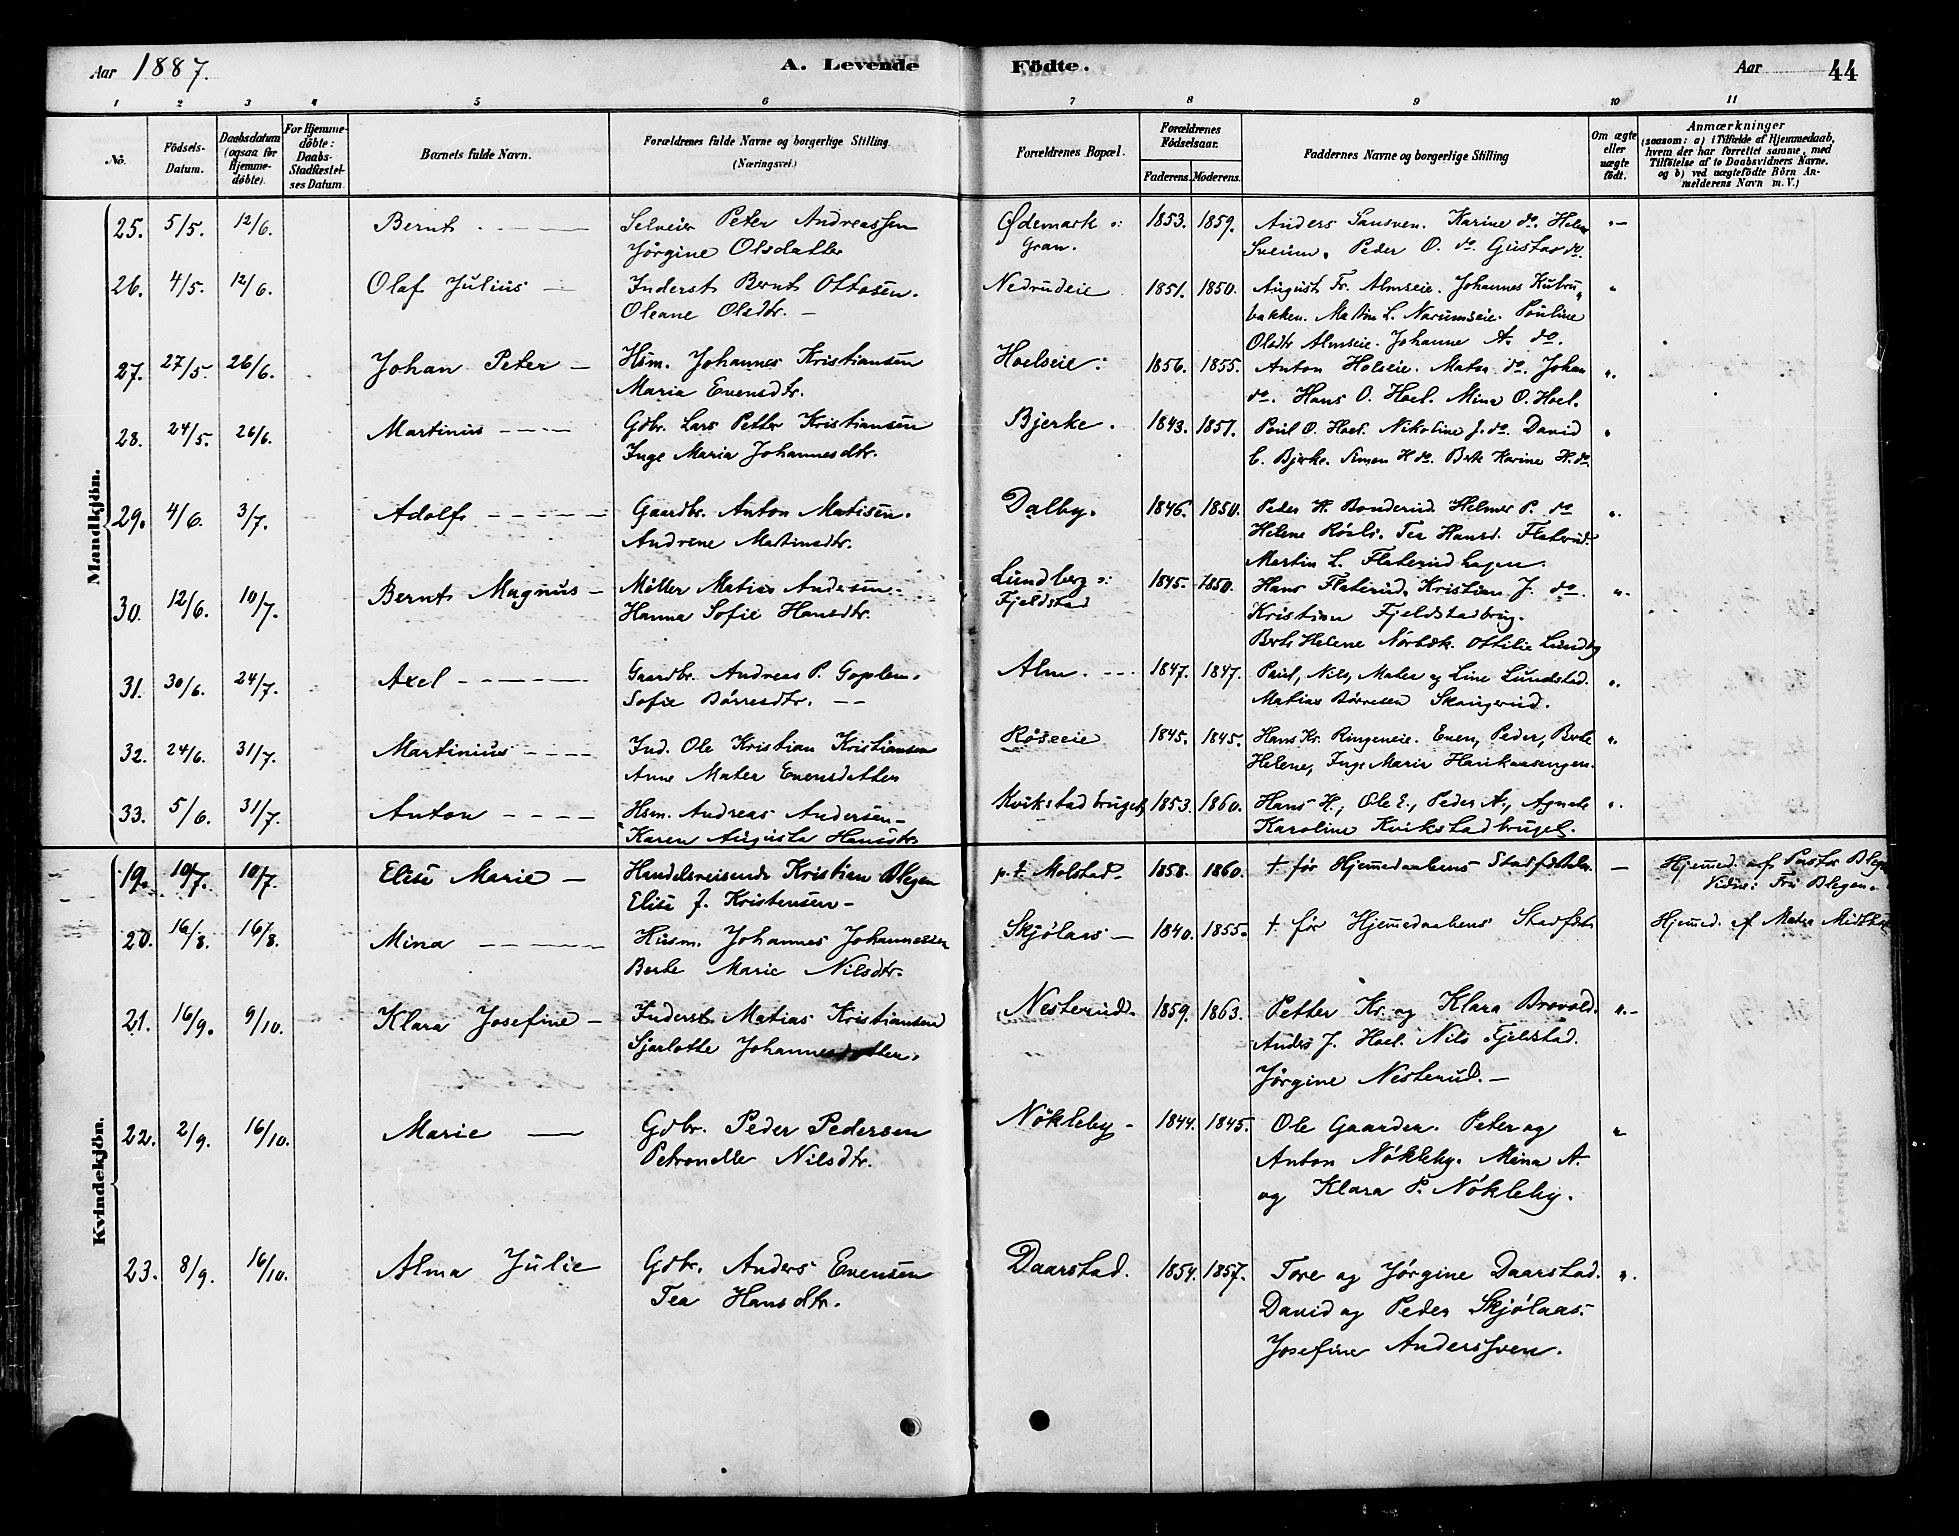 Aar 1887. A. Levende Födte. Aar 44
1 2 3 4 5 6 7 8 9 10 11
No. Födsels-Datum. Daabsdatum (ogsaa for Hjemme-döbte). For Hjemme-döbte: Daabs-Stadfæstel-ses Datum. Barnets fulde Navn. Forældrenes fulde Navne og borgerlige Stilling (Næringsvei.) Forældrenes Bopæl. Forældrenes Födselsaar. Faderens. Moderens. Faddernes Navne og borgerlige Stilling Om ægte eller uægte födt. Anmærkninger (saasom: a) i Tilfælde af Hjemmedaab, hvem der har forrettet samme, med Tilföielse af to Daabsvidners Navne, og b) ved uægtefödte Börn An-melderens Navn m. V.)
Mandkjön.
25. 5/5. 12/6. Bernt Selveier Peter Andreassen Ødemark 1853. 1859. Anders Sansven. Karine do. Helene
Jörgine Olsdatter Gran. Sveum. Peder O. do. Gustav do.
26. 4/5. 12/6. Olaf Julius Inderst Bernt Ottosen. Nedrudeie 1851. 1850. August Fr. Almseie. Johannes Kubru
Oleane Olsdtr. bakken. Martin L. Narumseie. Pauline
Olsdtr Almseie. Johanne A. do.
27. 27/5. 26/6. Johan Peter Hsm. Johannes Kristiansen Hoelseie 1856. 1855. Anton Holseie. Matea do. Johan
Maria Evensdtr. do. Hans O. Hoel. Mina O. Hoel.
28. 24/5. 26/6. Martinus Gdbr. Lars Petter Kristiansen Bjerke. 1843. 1851. Paul O. Hoel. Nikoline J. do. David
Inge Maria Johannesdtr. C. Bjerke. Simen H do. Berte Karine H. do.
29. 4/6. 3/7. Adolf Gaardbr. Anton Matisen. Dalby. 1846. 1850. Peder H. Bonderud. Helmer P. do
Andrine Martinsdtr. Helene Rösli. Tea Hansd. Flaterud.
Martin L. Flaterudhagen.
30. 12/6. 10/7. Bernt Magnus Möller Matias Andersen Lundberg 1845. 1850. Hans Flaterud. Kristian J. do.
Hanna Sofie Hansdtr. Fjeldstad Kristian Fjeldstadbrug.
Berte Helene Nörbæk. Ottilie Lundby
31. 30/6. 24/7. Axel Gaardbr. Andreas P. Goplen. Alm. 1847. 1847. Paul, Nils, Matea og Line Lundstad.
Sofie Börresdtr. Matias Börresen Skangerud.
32. 24/6. 31/7. Martinius Ind. Ole Kristian Kristiansen Röseeie 1845. 1845. Hans Kr. Ringeneie. Even, Peder, Berte
Anne Matea Evensdatter Helene, Inge Maria Haukaasengen.
33. 5/6. 31/7. Anton Hsm. Andreas Andersen Kvikstadbruget 1853. 1860. Hans H., Ole E., Peder A., Agnete
Karen Augusta Hansdtr. Karoline Kvikstadbruget.
Kvindekjön.
19. 10/7. 10/7. Elise Marie Handelsreisende Kristian Blegen p.t Molstad 1858. 1860. † før Hjemmedaabens Stadfestelse. Hjemmed. af Pastor Blegen
Elise J. Kristensen Vidne: Fru Blegen.
20. 16/8. 16/8. Mina Husm. Johannes Johannessen Skjölaas 1840. 1855. † för Hjemmedaabens Stadfest Hjemmed. af Matea
Berte Marie Nilsdtr.
21. 16/9. 9/10. Klara Josefine Inderst Matias Kristiansen Nesterud. 1859. 1863. Petter Kr. og Klara Brovold.
Sjarlotte Johannesdatter. Anders J. Hoel. Nils Fjeldstad.
Jörgine Nesterud.
22. 2/9. 16/10. Marie Gdbr. Peder Pedersen Nökleby 1844. 1845. Ole Gaarder. Peter og
Petronelle Nilsdtr. Anton Nökleby. Mina A.
og Klara P. Nökleby.
23. 8/9. 16/10. Alma Julie Gdbr. Anders Evensen Daarstad. 1854. 1857. Tore og Jörgine Daarstad.
Tea Hansdtr. David og Peder Skjölaas
Josefine Anderssven.